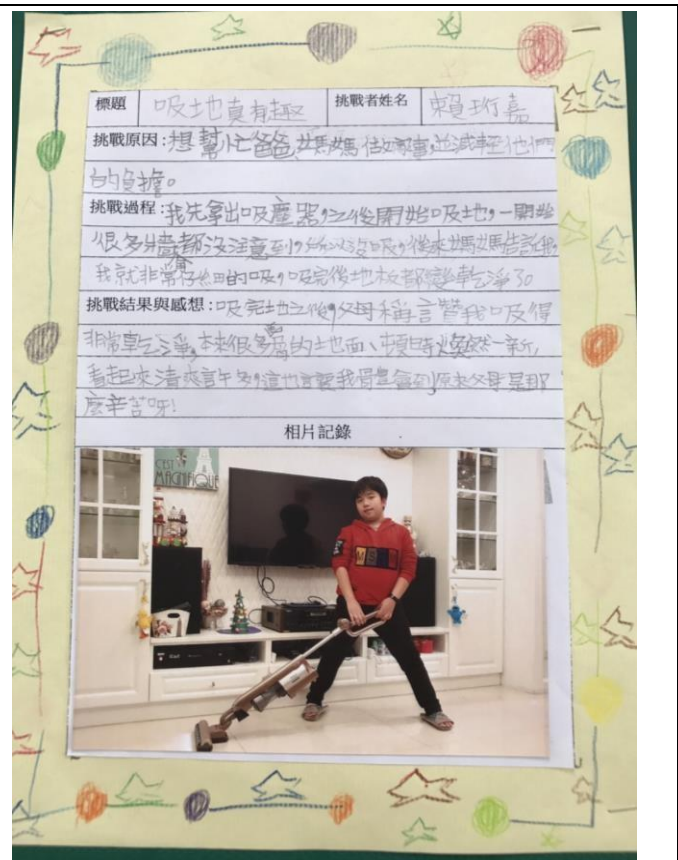 標題 吸地真有趣 挑戰者姓名 賴珩嘉
挑戰原因:想幫忙爸爸、媽媽做家事,並減輕他們
的負擔。
挑戰過程:我先拿出吸塵器,之後開始吸地,一開始
很多牆都沒注意到,所以沒吸,後來媽媽告訴我,
我就非常仔細的吸,吸完後地板都變乾淨了。
挑戰結果與感想:吸完地之後,父母稱讚我吸得
非常乾淨,本來很多的土地面、頓時煥然一新,
看起來清爽許多,這也讓我體會到,原來父母是那
麼辛苦呀!
相片記錄
C'EST
MAGNIFIQUE